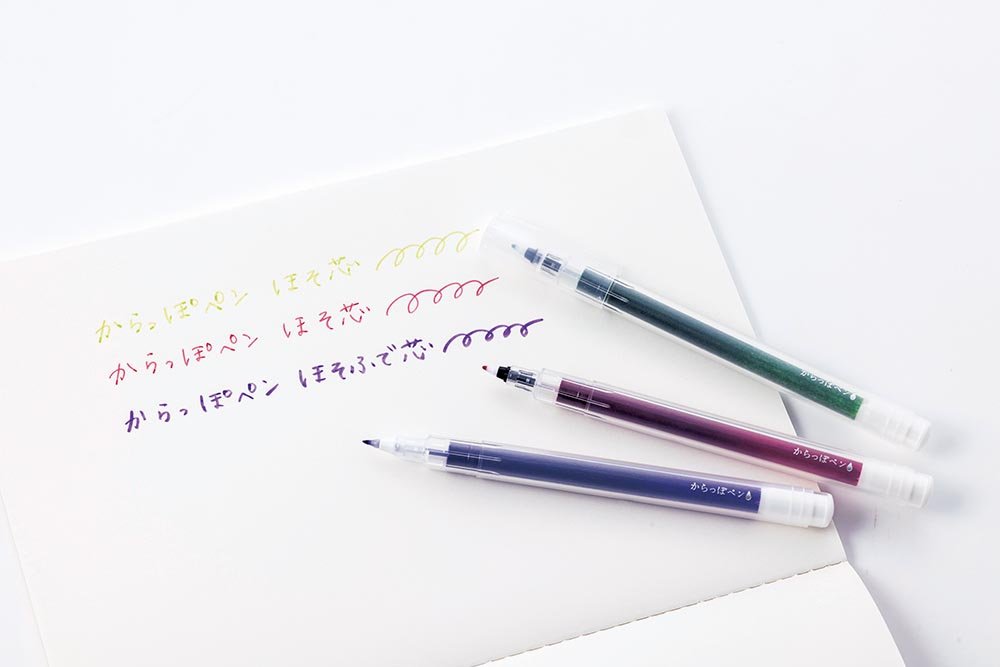 からっぽペン ほそ芯
からっぽペン ほそ芯
からっぽペン ほそふで芯
からっぽペン
からっぽペン
からっぽペン